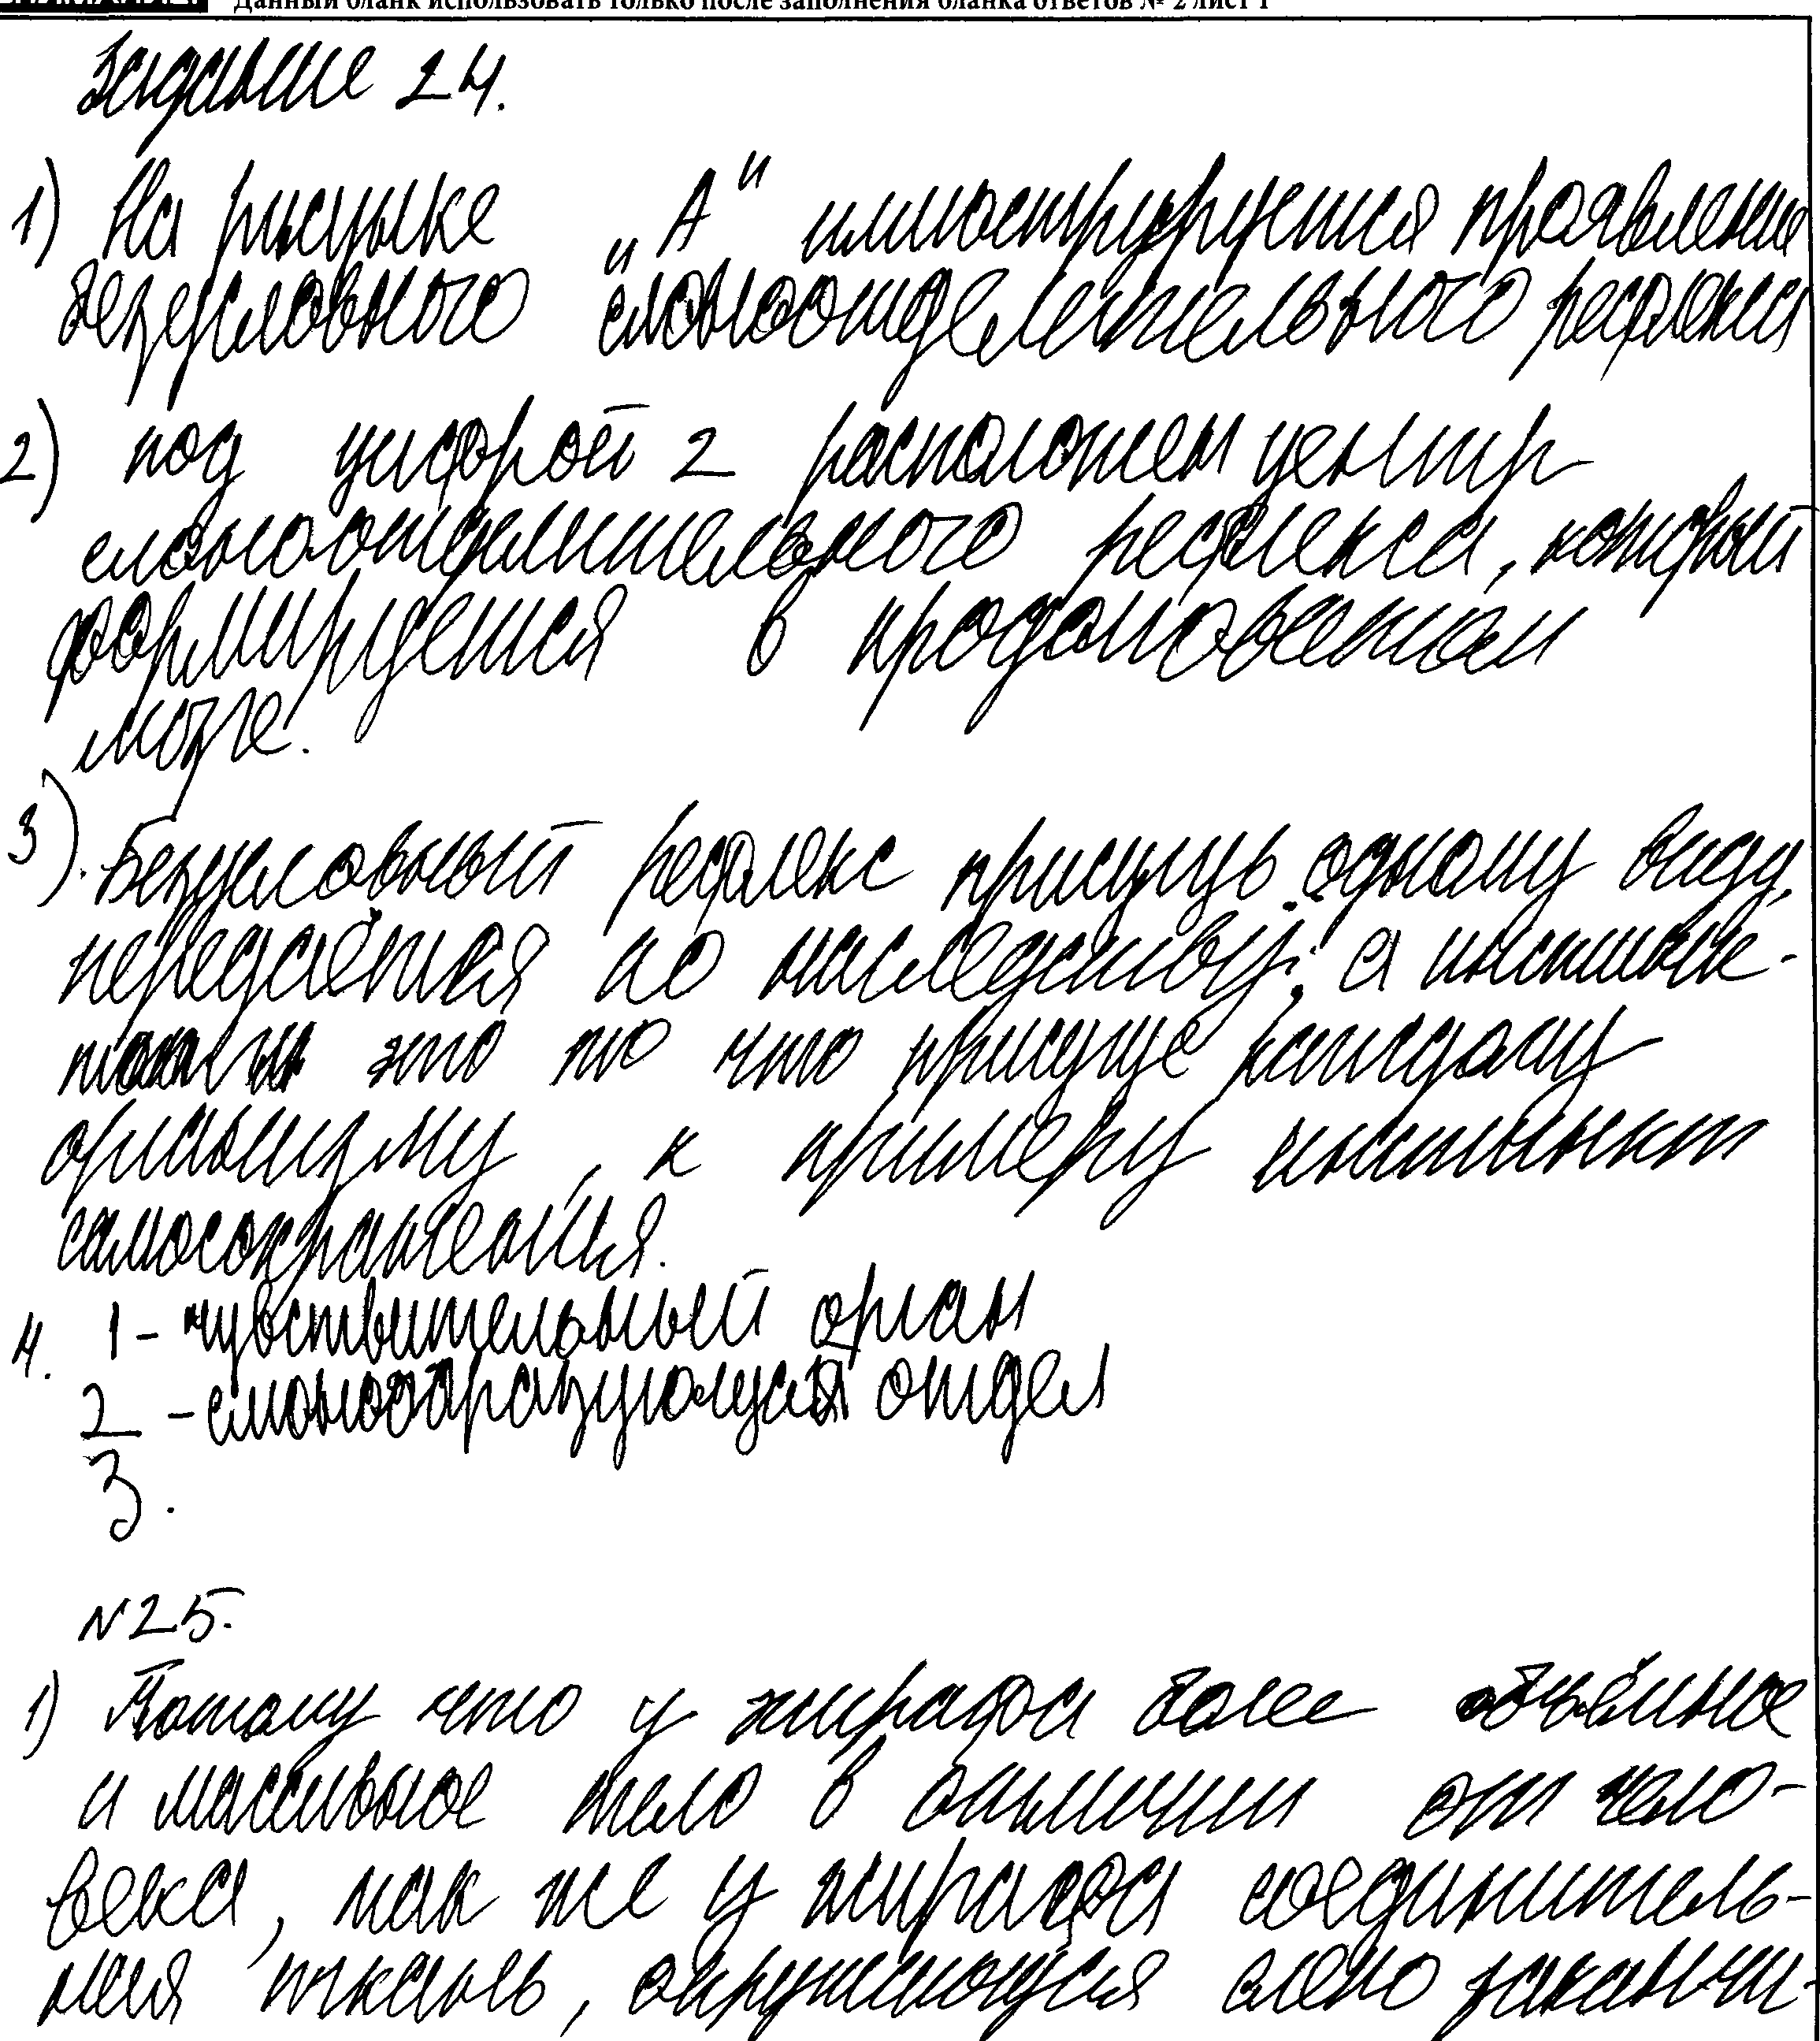 Данный бланк использовать только после заполнения бланка ответов № 2 лист 1
Задание 24.
1) На рисунке „А" иллюстрируется проявление
безусловного слюноотделительного рефлекса
2) под цифрой 2 расположен центр
слюноотделительного рефлекса, который
формируется в продолговатом
мозге.
3). Безусловный рефлекс присущь одному виду,
передаётся по наследству, а инстинк-
это то что присуще каждому
организму, к примеру инстинкт
самосохранения.
4. 1- чувствительный орган
2 - слюнообразующий отдел
3.
N25.
1) Потому что у жирафа более объёмное
и массивное тело в отличии от чело-
века, так же у жирафа соединитель-
ная ткань, окружающая заканчи-